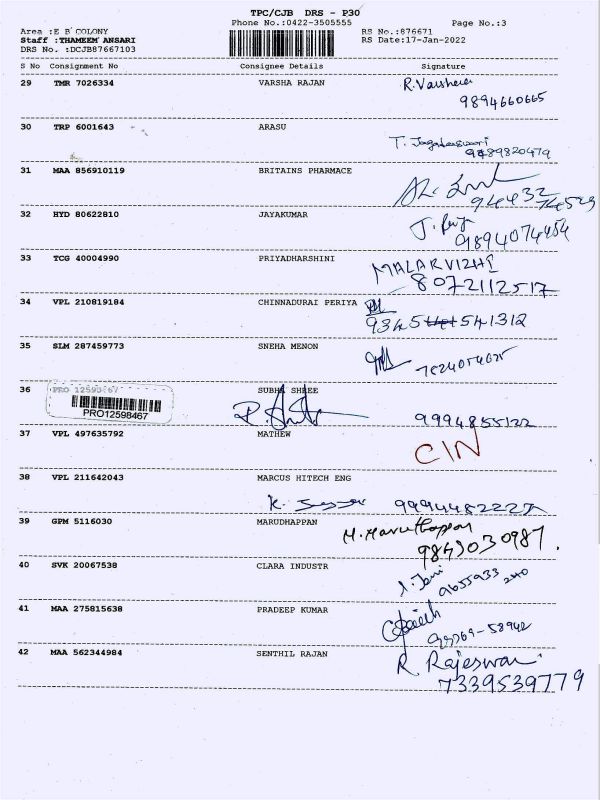 TPC/CJB DRS - P30
Phone No.:0422-3505555 Page No.:3
Area :E B COLONY RS No.:876671
Staff :THAMEEM ANSARI RS Date:17-Jan-2022
DRS No. :DCJB87667103
S No Consignment No Consignee Details Signature
29 TMR 7026334 VARSHA RAJAN R. Varsha
9894660665
30 TRP 6001643 ARASU T. Jagadeeswari
9489820479
31 MAA 856910119 BRITAINS PHARMACE
94432 74529
32 HYD 80622810 JAYAKUMAR
9894074454
33 TCG 40004990 PRIYADHARSHINI MALARVIZHI
8072112517
34 VPL 210819184 CHINNADURAI PERIYA
9345 541312
35 SLM 287459773 SNEHA MENON
36 PRO 12598467 SUBHA SHREE
PRO12598467
9994855122
37 VPL 497635792 MATHEW CIN
38 VPL 211642043 MARCUS HITECH ENG
K.
39 GPM 5116030 MARUDHAPPAN M. Maruthappan
9843030987.
40 SVK 20067538 CLARA INDUSTR
9655933 240
41 MAA 275815638 PRADEEP KUMAR
42 MAA 562344984 SENTHIL RAJAN R. Rajeswari
7339539779